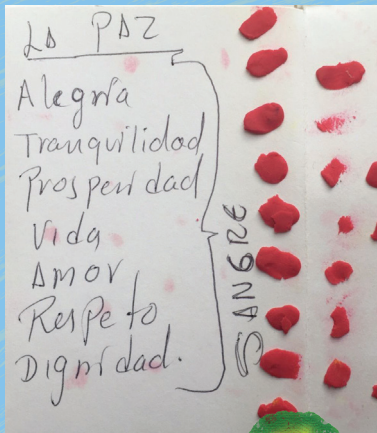 LA PAZ
Alegría
Tranquilidad
Prosperidad
Vida
Amor
Respeto
Dignidad.
SANGRE